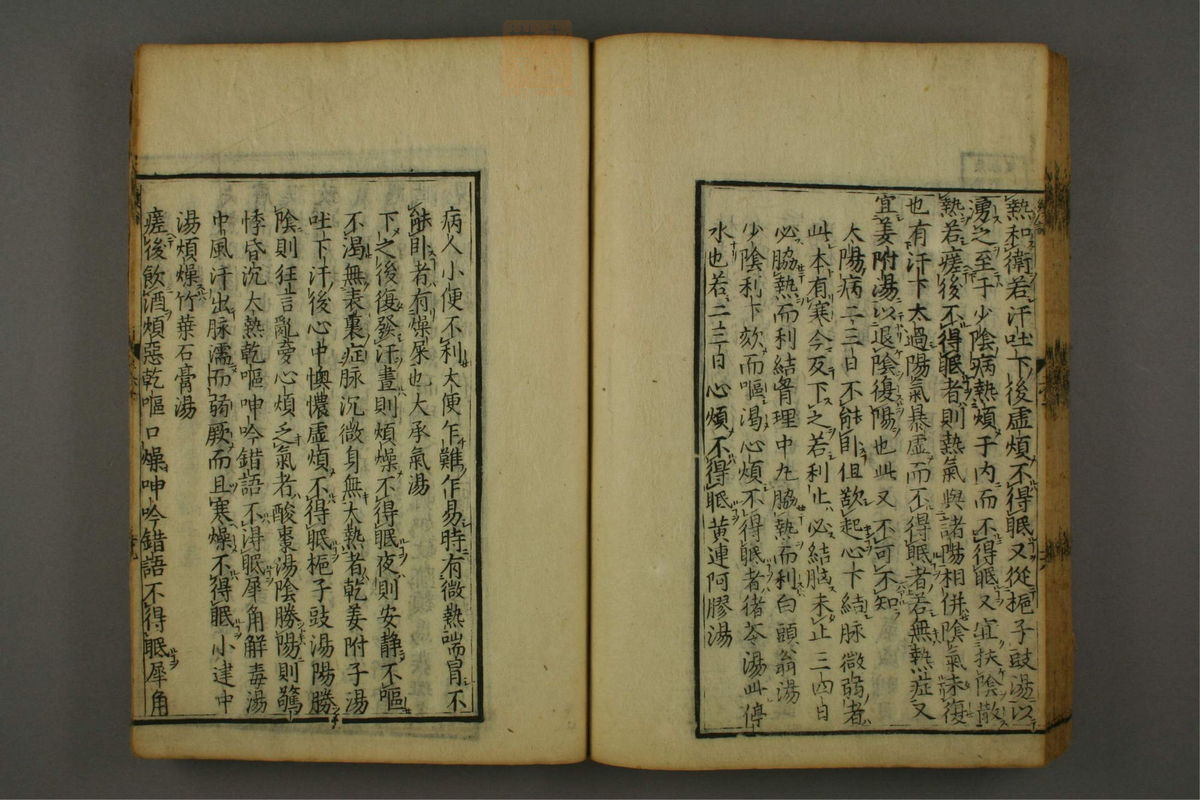 熱和衛若汗吐下後虛煩不得眠又從梔子豉湯以
湧之至于少陰病熱煩于内而不得眠又宜扶陰散
熱若瘥後不得眠者則熱氣與諸陽相併陰氣未復
也有汗下太過陽氣暴虛而不得眠者若無熱症又
宜姜附湯以退陰復陽也此又不可不知
太陽病二三日不能卧但欲起心下結脉微弱者
此本有寒今反下之若利止必結胸未止三四日
必脇熱而利結胷理中丸脇熱而利白頭翁湯
少陰利下欬而嘔渴心煩不得眠者猪苓湯此停
水也若二三日心煩不得眠黄連阿膠湯
病人小便不利大便乍難乍易時有微熱喘冒不
能卧者有燥屎也大承氣湯
下之後復發汗晝則煩燥不得眠夜則安静不嘔
不渴無表裏症脉沉微身無大熱者乾姜附子湯
吐下汗後心中懊憹虛煩不得眠梔子豉湯陽勝
陰則狂言亂夢心煩乏氣者酸棗湯陰勝陽則驚
悸昏沉大熱乾嘔呻吟錯語不得眠犀角解毒湯
中風汗出脉濡而弱厥而且寒燥不得眠小建中
湯煩燥竹葉石膏湯
瘥後飲酒煩惡乾嘔口燥呻吟錯語不得眠犀角